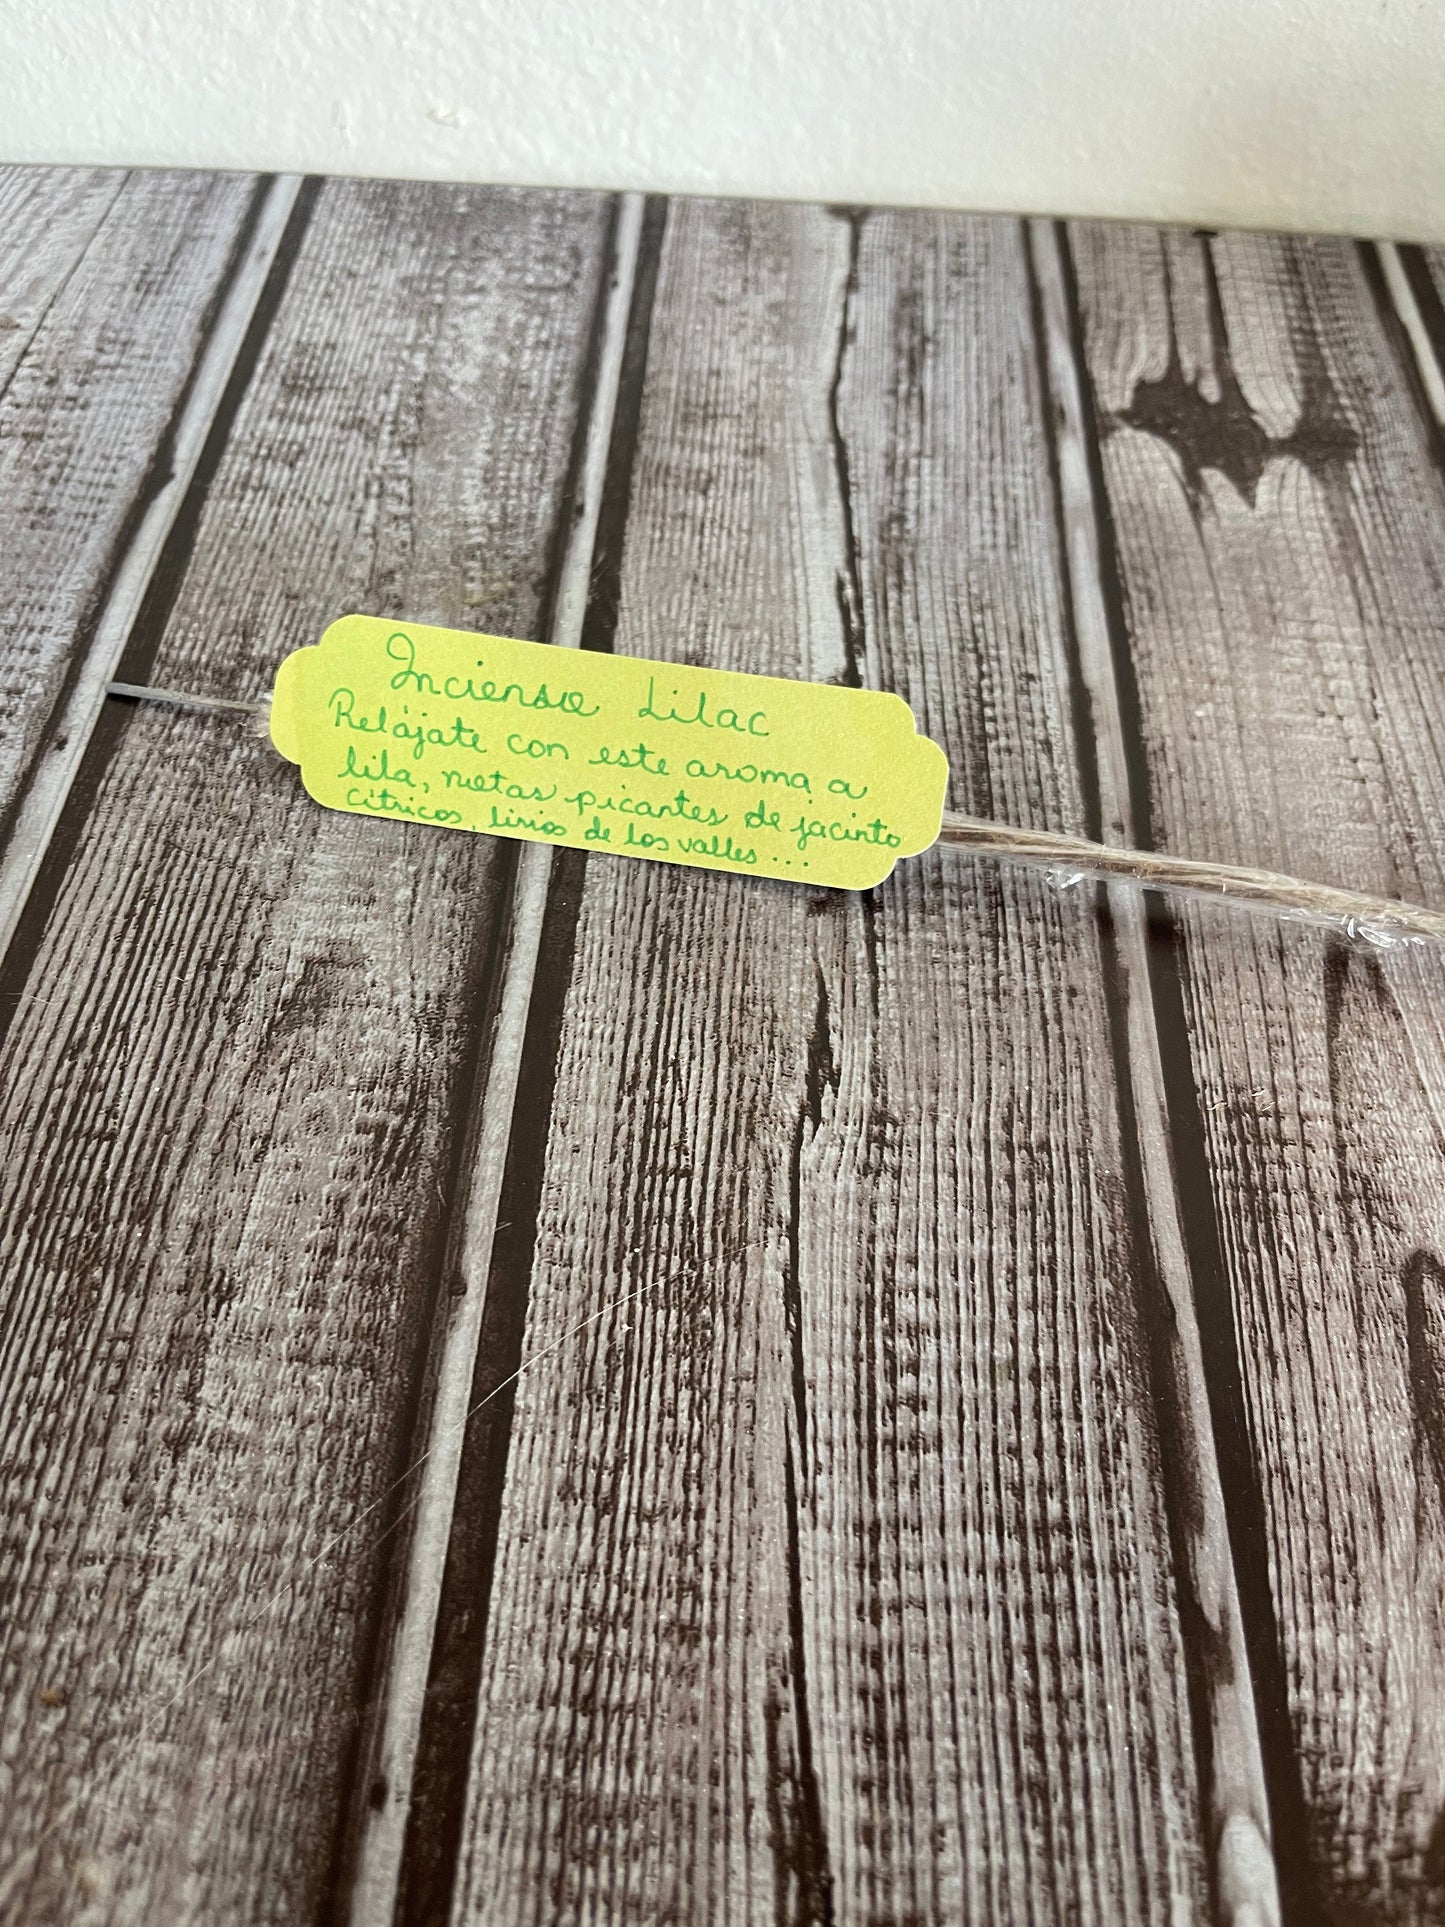 Incienso Lilac
Relájate con este aroma a
lila, notas picantes de jacinto
cítricos, lirios de los valles ...